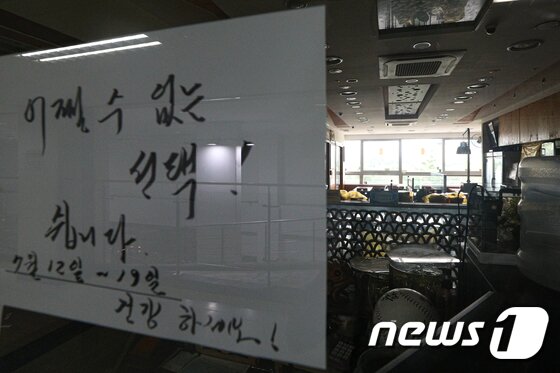 어쩔 수 없는
선택!
쉽니다.
7월 12일 ~ 19일
건강 하세요!
news1